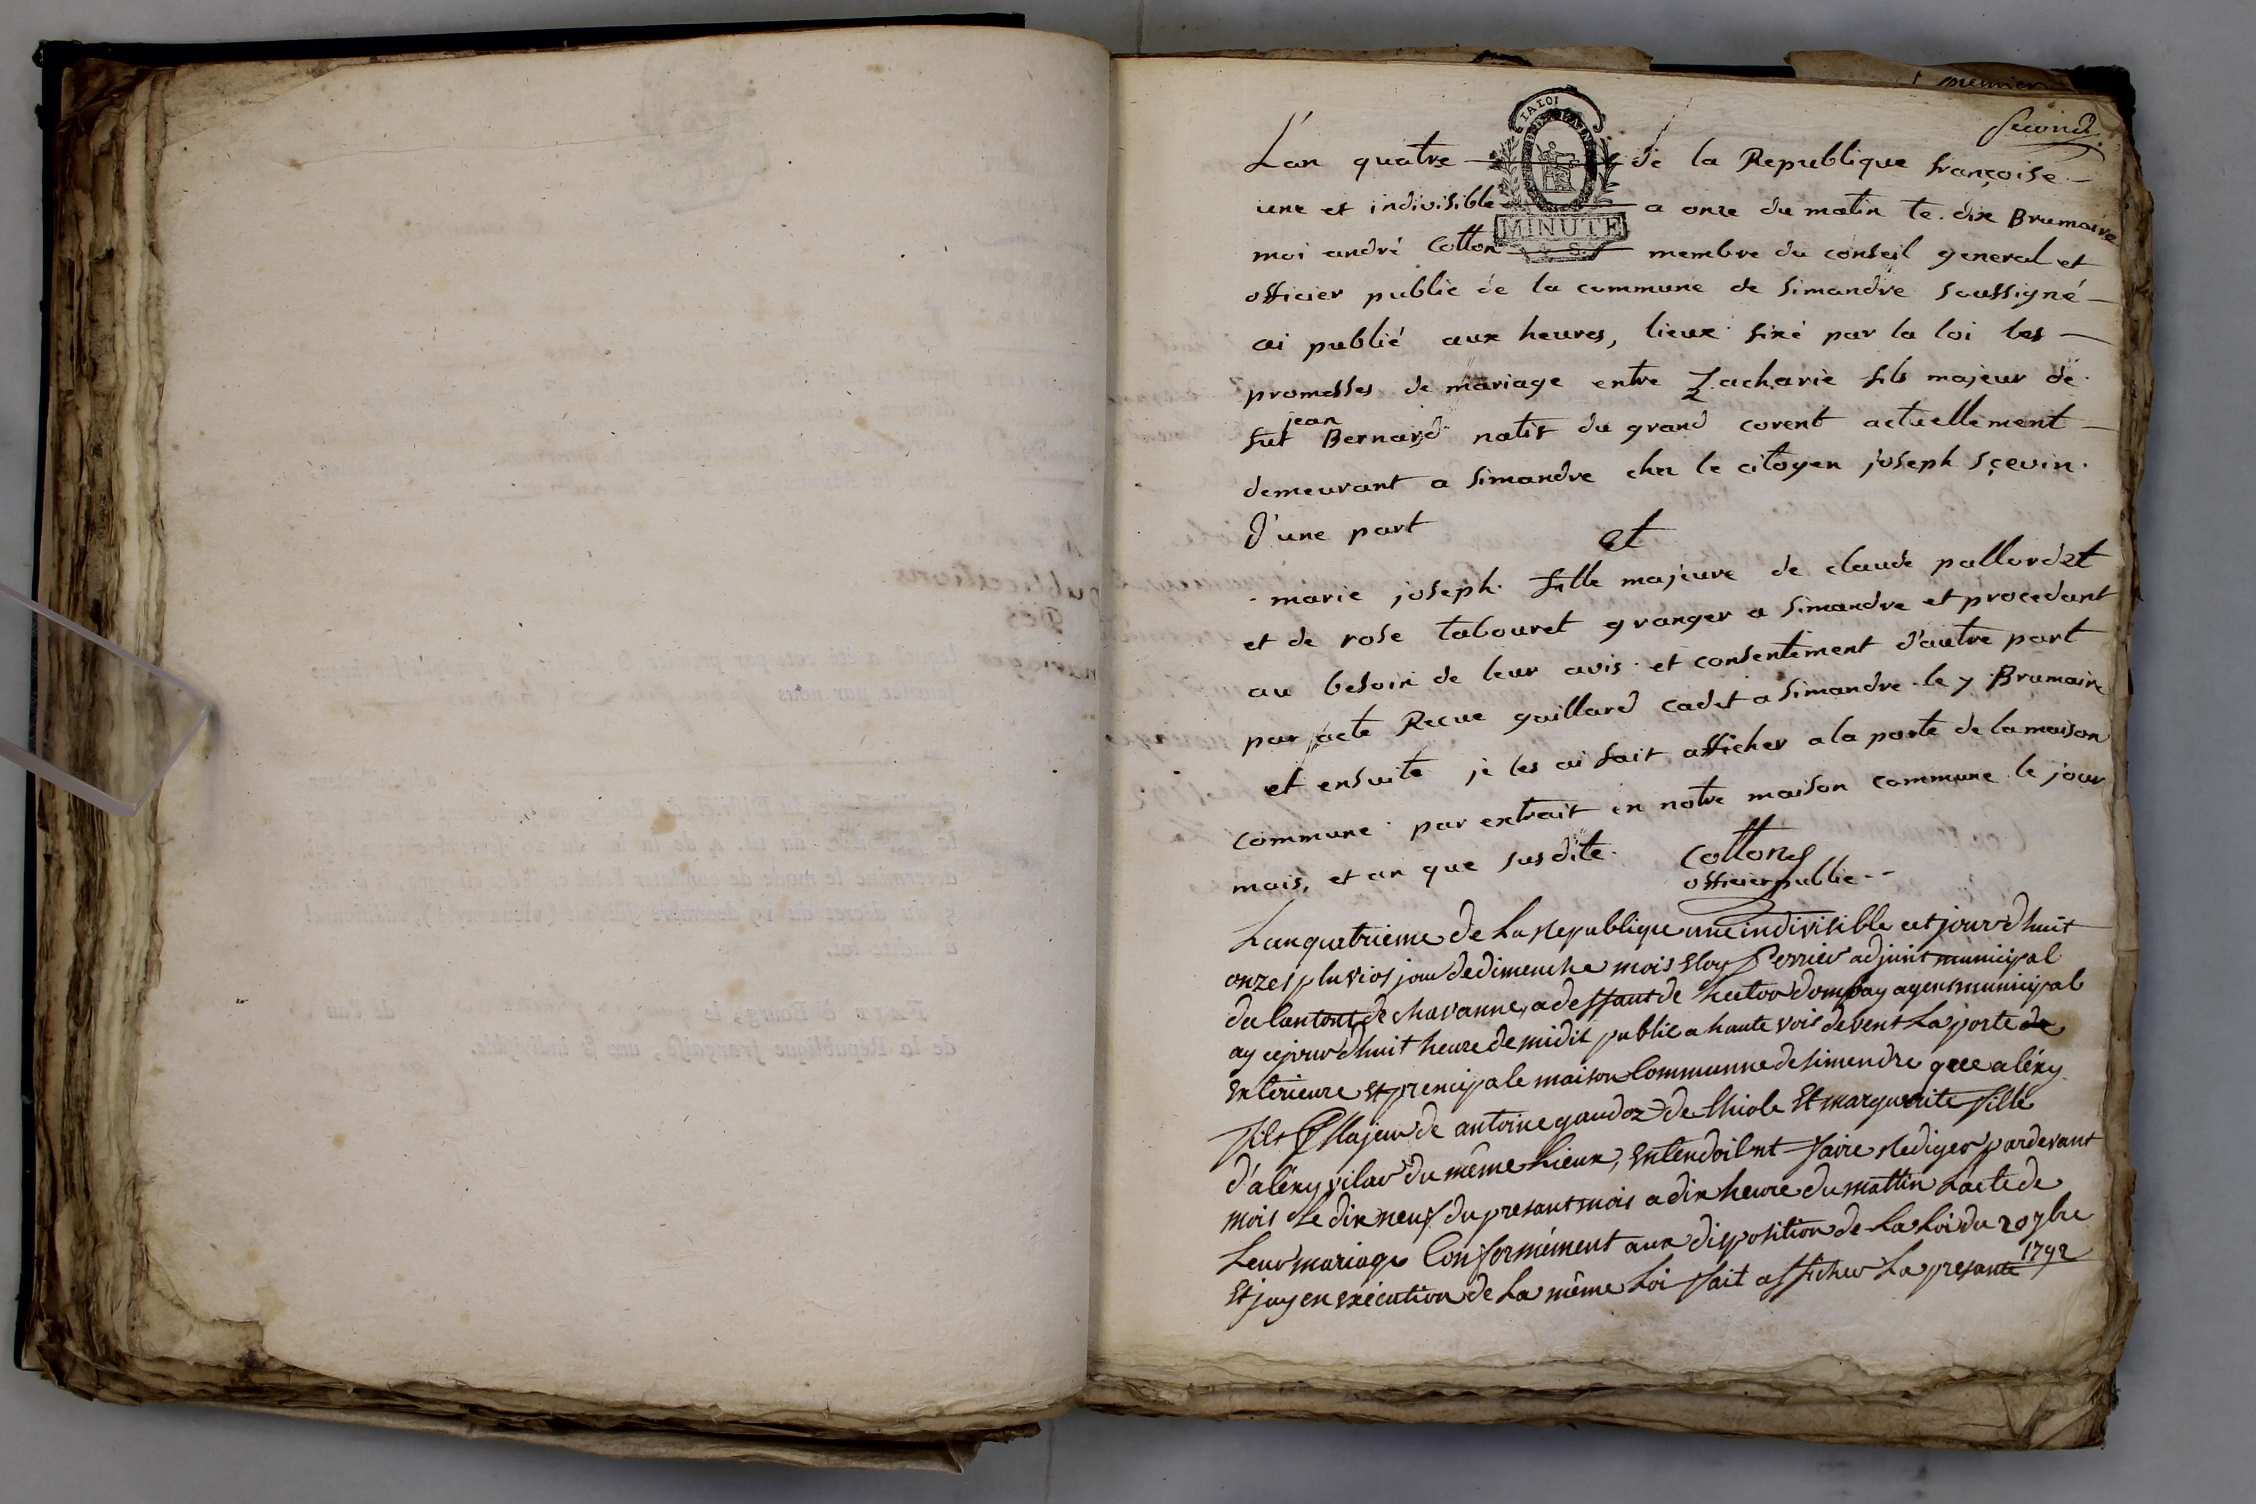 second
L'an quatre de la Republique françoise
une et indivisible a onze du matin le dix Brumaire
moi andré Cotton membre du conseil general et
officier public de la commune de simandre soussigné
ai publié aux heures, lieux fixé par la loi les
promesses de mariage entre Zacharie fils majeur de
jean
fut Bernard natif du grand corent actuellement
demeurant a simandre chez le citoyen joseph sçevin
d'une part
et
marie joseph fille majeure de claude pallordet
et de rose tabouret granger a simandre et procedant
au besoin de leur avis et consentement d'autre part
par acte Recue gaillard cadet a simandre le 7 Brumaire
et ensuite je les ai fait afficher a la porte de la maison
commune par extrait en notre maison commune le jour
mois, et an que susdite
Cotton
officier public
Lan quatrieme de La Republique une indivisible cet jourd'huit
onze pluvios jour de dimenche mois Eloy Perrier adjoint municipal
du Canton de chavanne, a deffaut de hector dompay agent municipal
ay cejourd'huit heure de midit public a haute vois devent La porte de
Exterieure Et prencipale maison Communne de simendre que aléxy
fils Majeur de antoine gaudoz de Thiole Et marguerite fille
d'aléxy vilar du même Lieux, Entendoilnt faire Rediger pardevant
mois Le dix neuf du presant mois a dix heure du mattin Lacte de
Leur mariage Conformément aux disposition de La Loi du 20 7bre
1792
Et jay en exécution de La même Loi fait afficher La presante
LA LOI
MINUTE
publications
des